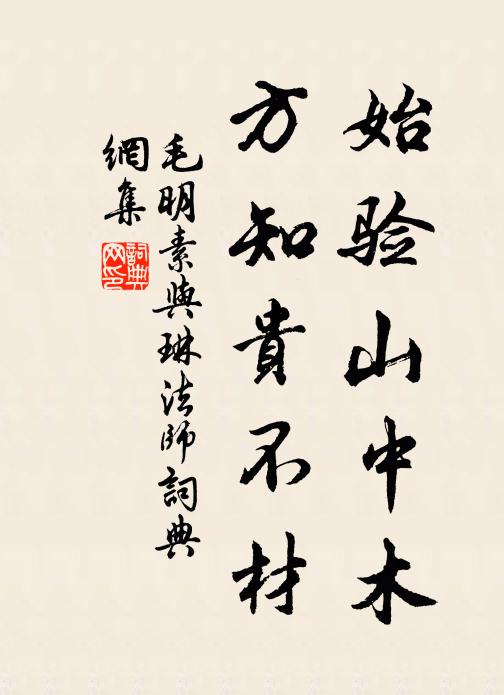 始验山中木
方知貴不材
毛明素與琳法師詞典
網集
詞典
网印